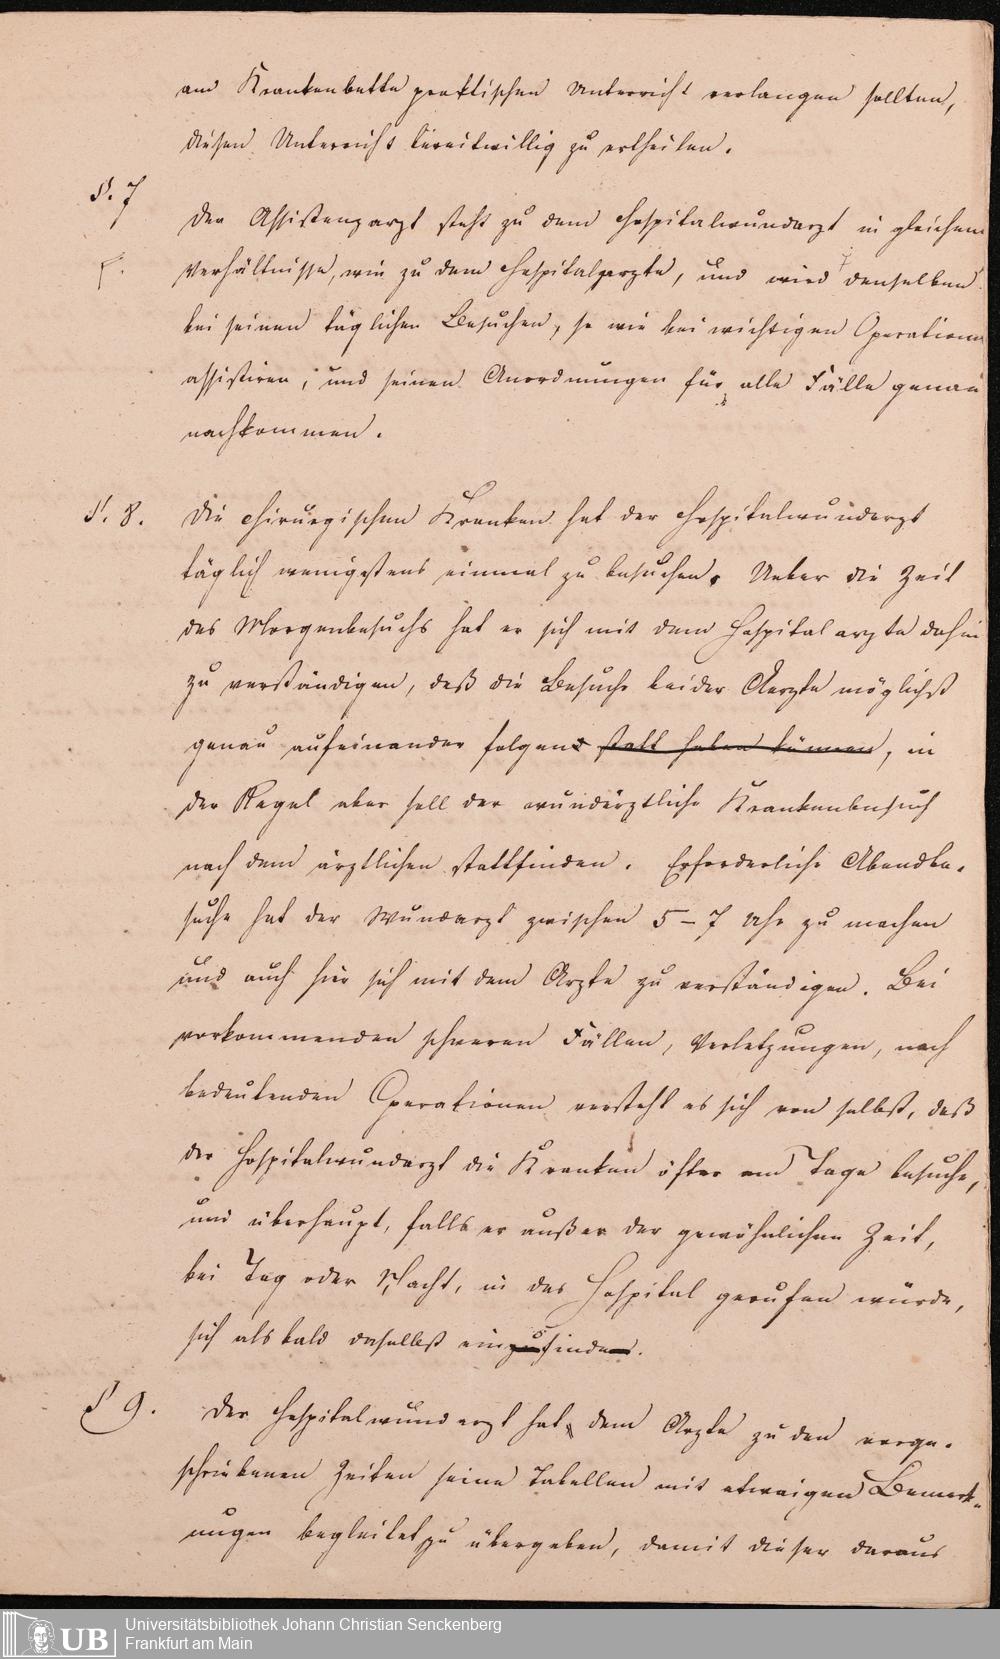 am Krankenbette praktischen Unterricht verlangen sollten,
diesen Unterricht bereitwillig zu ertheilen.
§. 7
Der Assistenzarzt steht zu dem Hospitalwundarzt in gleichem
Verhältnisse, wie zu dem Hospitalarzte, und wird denselben
bei seinen täglichen Besuchen, so wie bei wichtigen Operationen
assistiren, und seinen Anordnungen für alle Fälle genau
nachkommen.
§. 8. Die chirurgischen Kranken hat der Hospitalwundarzt
täglich wenigstens einmal zu besuchen. Ueber die Zeit
des Morgenbesuchs hat er sich mit dem Hospitalarzte dahin
zu verständigen, daß die Besuche beider Aerzte möglichst
genau aufeinander folgend statt haben können, in
der Regel aber soll der wundärztliche Krankenbesuch
nach dem ärztlichen stattfinden. Erforderliche Abendbe-
suche hat der Wundarzt zwischen 5-7 Uhr zu machen
und auch hier sich mit dem Arzte zu verständigen. Bei
vorkommenden schweren Fällen, Verletzungen, nach
bedeutenden Operationen versteht es sich von selbst, daß
der Hospitalwundarzt die Kranken öfter am Tage besuche,
und überhaupt, falls er außer der gewöhnlichen Zeit,
bei Tag oder Nacht, in das Hospital gerufen würde,
sich alsbald daselbst einzufinden.
§ 9. Der Hospitalwundarzt hat dem Arzte zu den vorge-
schriebenen Zeiten seine Tabellen mit etwaigen Bemerk-
ungen begleitet zu übergeben, damit dieser daraus
UB
Universitätsbibliothek Johann Christian Senckenberg
Frankfurt am Main